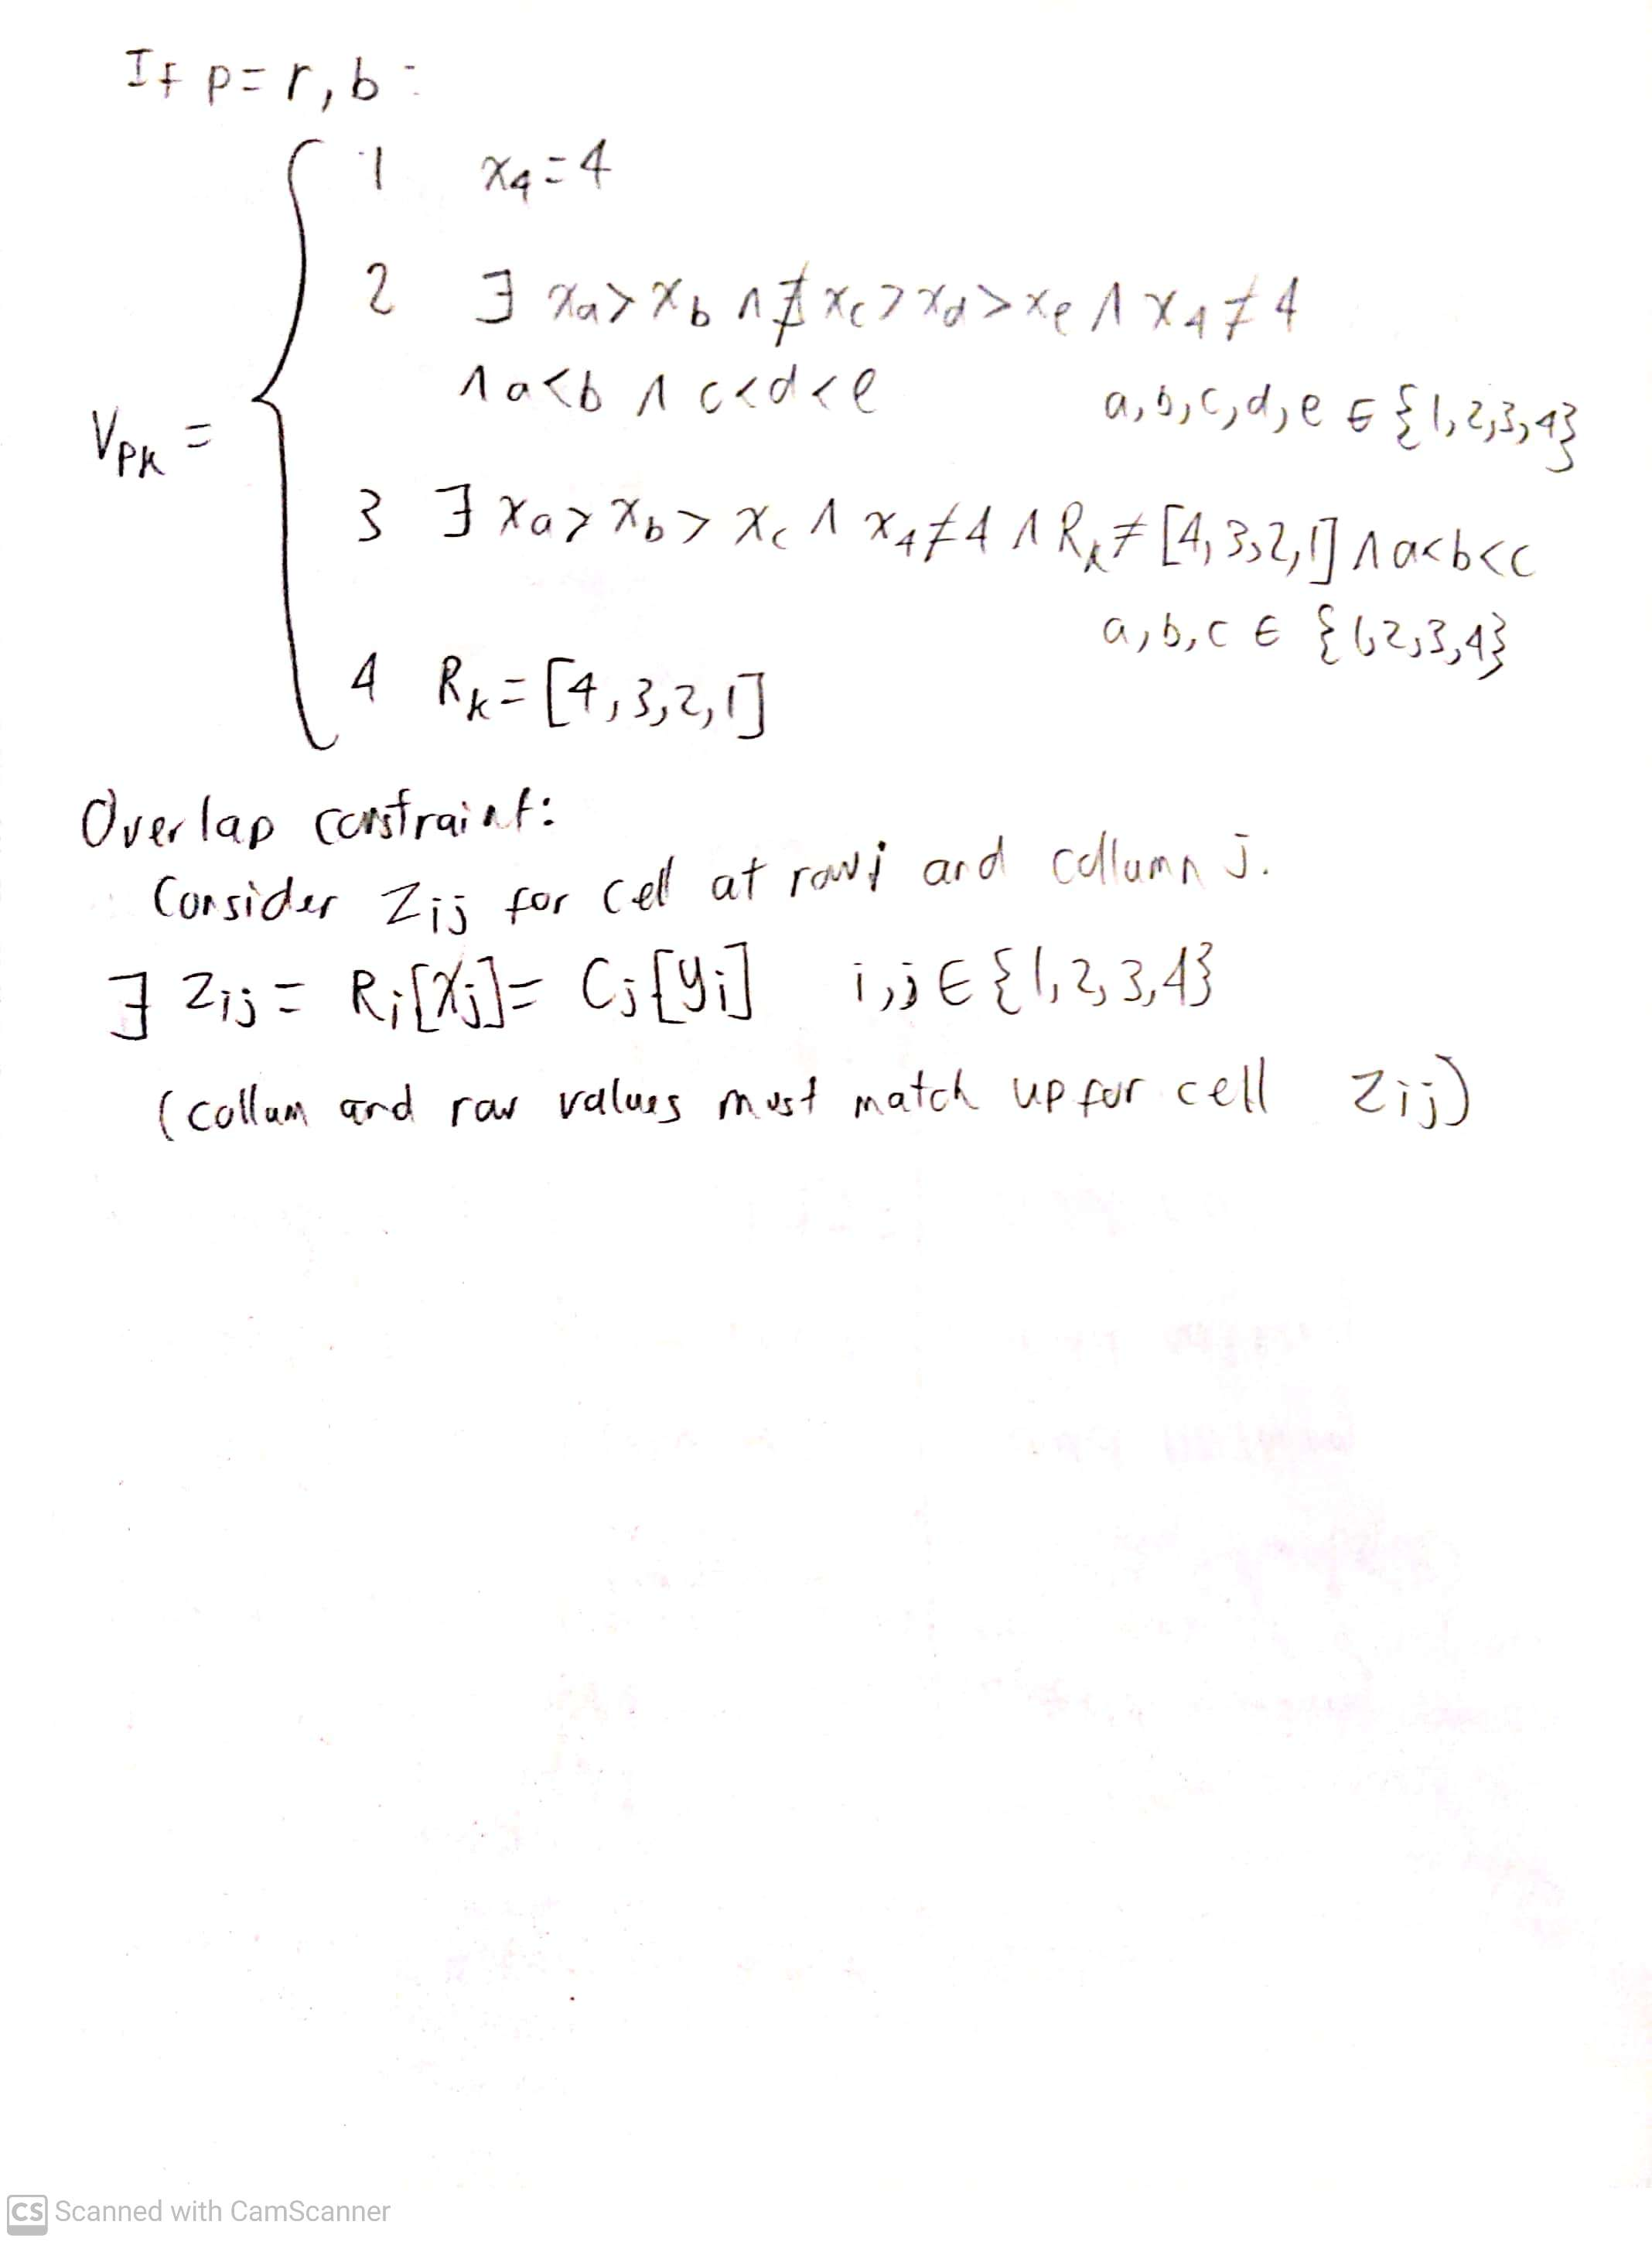 If p=r,b:
1 x₄=4
2 ∃ xₐ>x_b ∧ ∄ x_c>x_d>x_e ∧ x₄≠4
∧ a<b ∧ c<d<e a,b,c,d,e ∈ {1,2,3,4}
V_pk =
3 ∃ xₐ>x_b>x_c ∧ x₄≠4 ∧ R_k≠[4,3,2,1] ∧ a<b<c
a,b,c ∈ {1,2,3,4}
4 R_k=[4,3,2,1]
Overlap constraint:
Consider Z_ij for cell at row i and collumn j.
∃ Z_ij = R_i[x_j]= C_j[y_i] i,j ∈ {1,2,3,4}
(collum and row values must match up for cell Z_ij)
CS Scanned with CamScanner